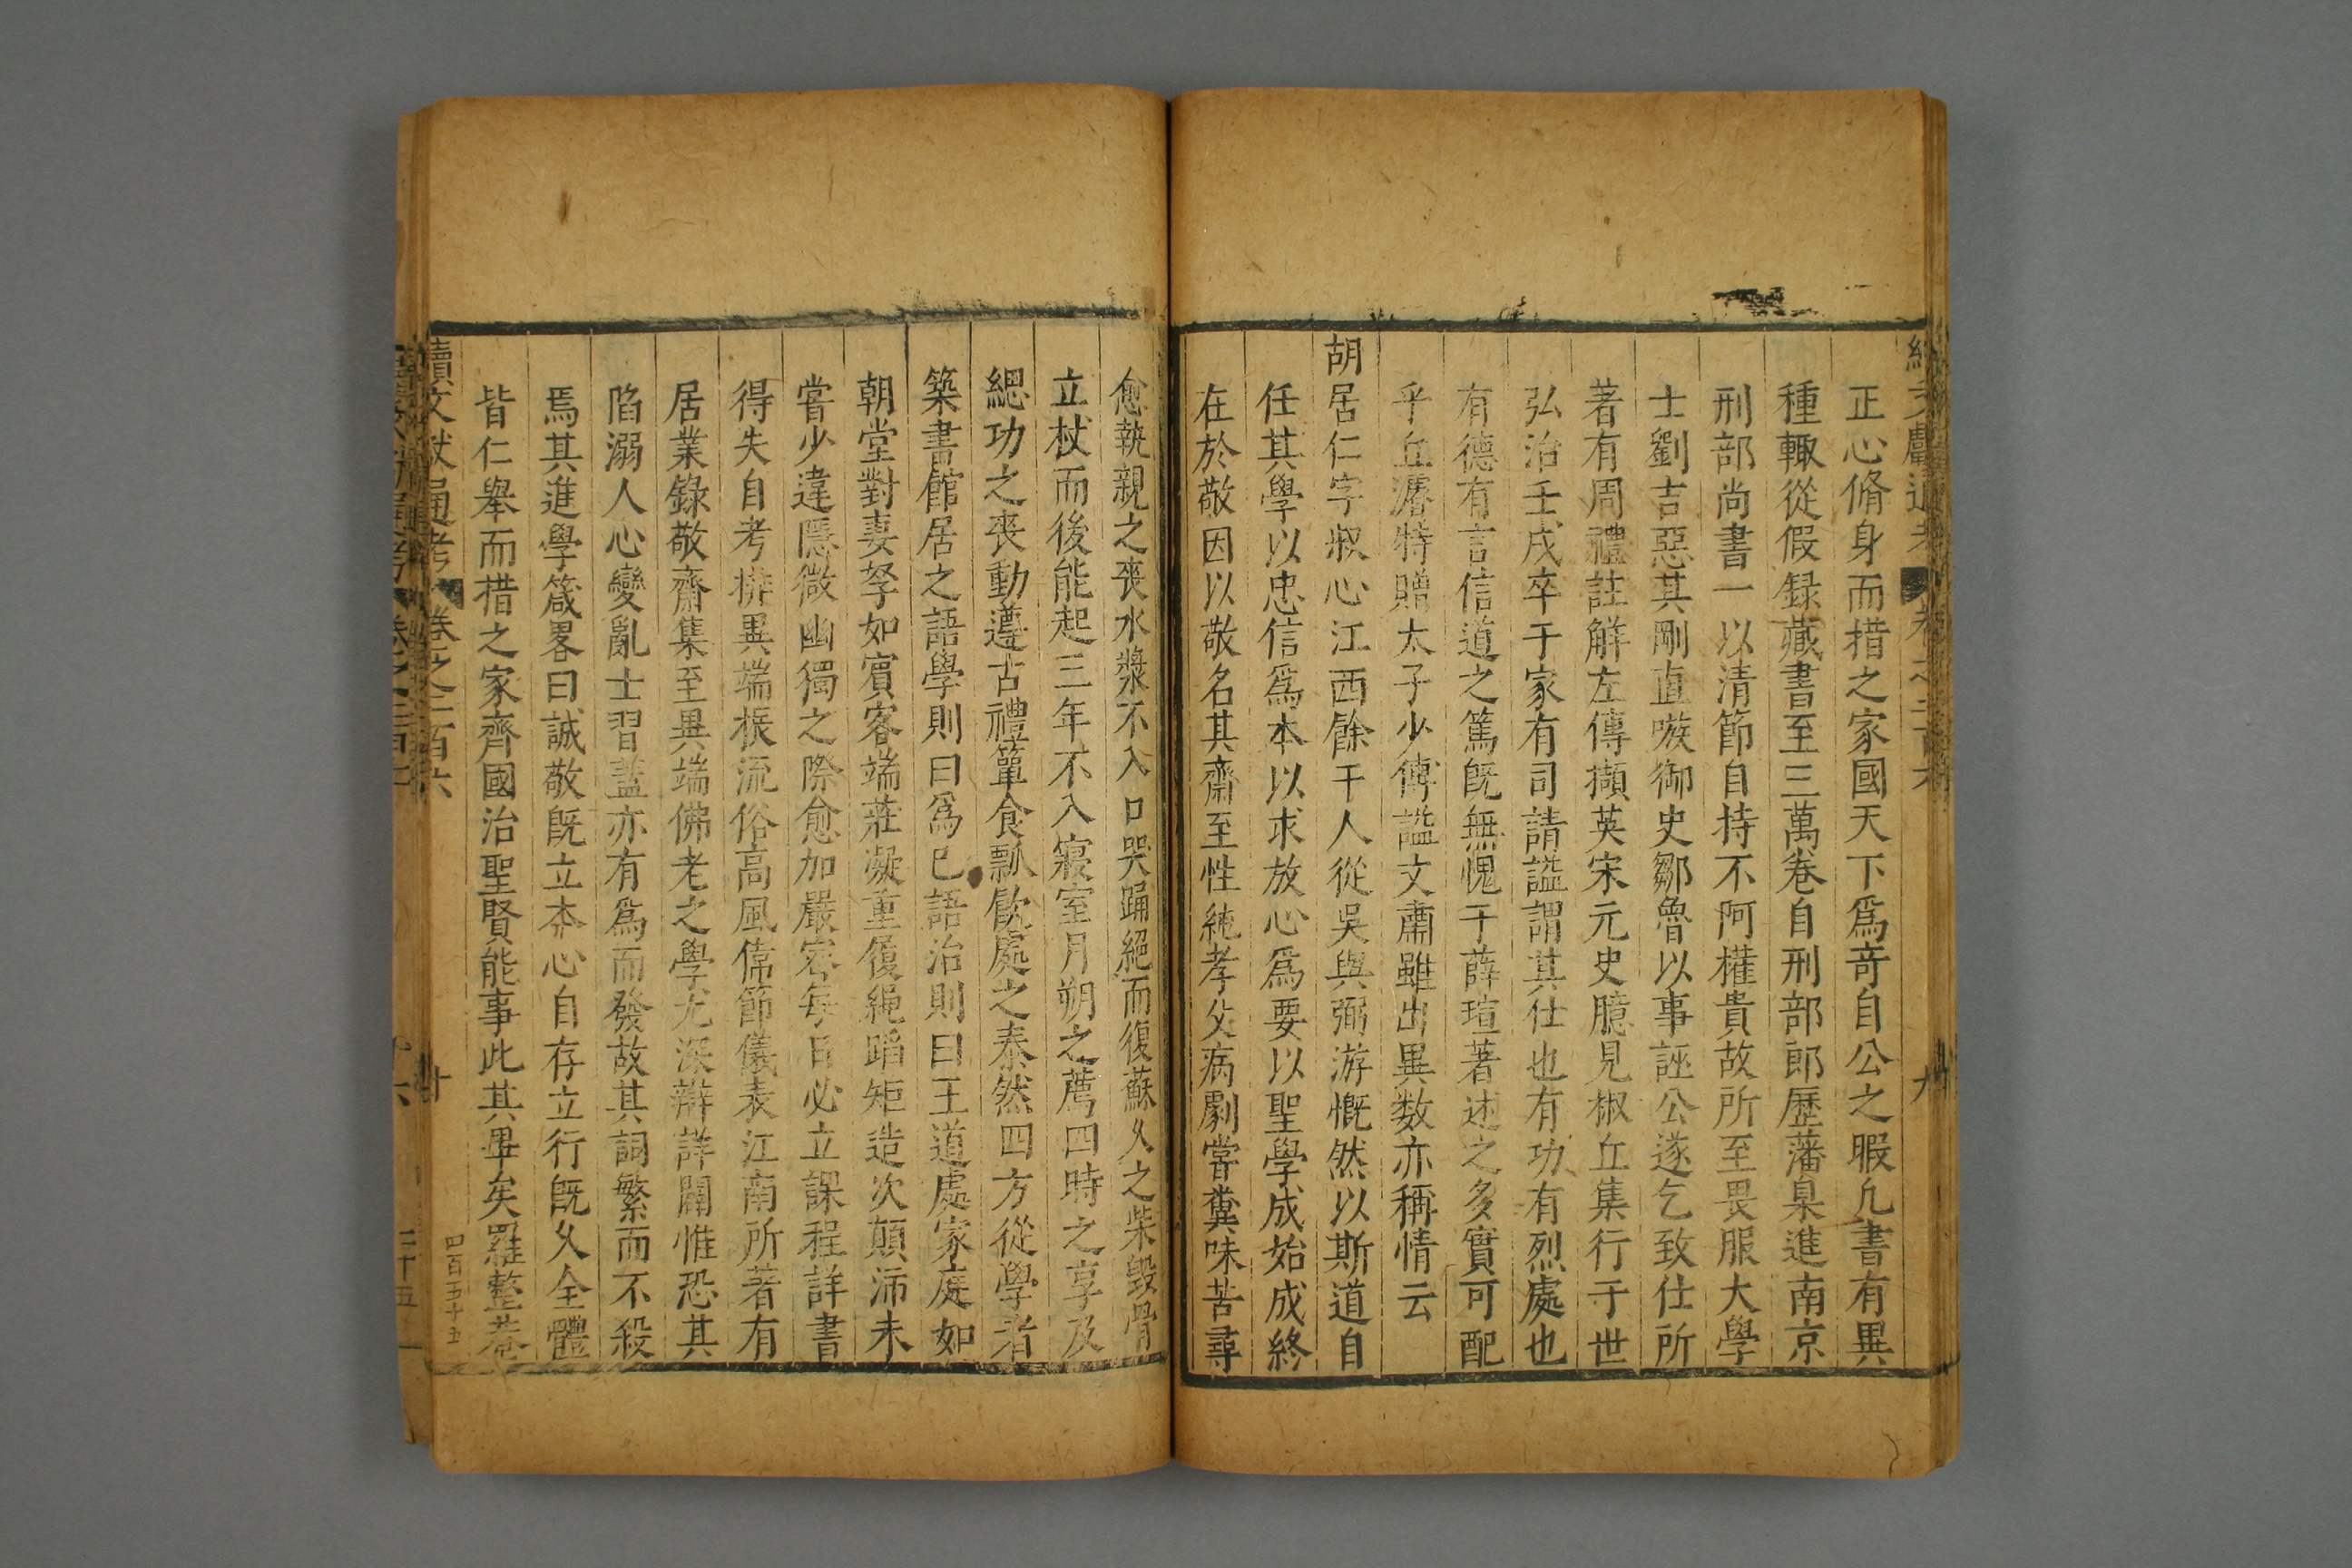 正心脩身而措之家國天下爲竒自公之暇凢書有異
種輙從假録藏書至三萬卷自刑部郎歷藩臬進南京
刑部尚書一以清節自持不阿權貴故所至畏服大學
士劉吉惡其剛直嗾御史鄒魯以事誣公遂乞致仕所
著有周禮註解左傳擷英宋元史臆見椒丘集行于世
弘治壬戌卒于家有司請謚謂其仕也有功有烈處也
有德有言信道之篤旣無愧于薛瑄著述之多實可配
乎丘濬特贈太子少傅謚文肅雖出異数亦稱情云
胡居仁字叔心江西餘干人從吳與弼游慨然以斯道自
任其學以忠信爲本以求放心爲要以聖學成始成終
在於敬因以敬名其齋至性純孝父病劇嘗糞味苦尋
愈執親之喪水漿不入口哭踊絕而復蘇久之柴毀骨
立杖而後能起三年不入寢室月朔之薦四時之享及
緦功之喪動遵古禮簞食瓢飲處之泰然四方從學者
築書館居之語學則曰爲已語治則曰王道處家庭如
朝堂對妻孥如賓客端莊凝重履繩蹈矩造次顛沛未
嘗少違隱微幽獨之際愈加嚴宻每日必立課程詳書
得失自考排異端振流俗高風偉節儀表江南所著有
居業錄敬齋集至異端佛老之學尤深辯詳闢惟恐其
陷溺人心變亂士習蓋亦有爲而發故其詞繁而不殺
焉其進學箴畧曰誠敬旣立本心自存立行旣久全體
皆仁舉而措之家齊國治聖賢能事此其畢矣羅整菴
續文獻通考 卷之二百六 十
四百五十五